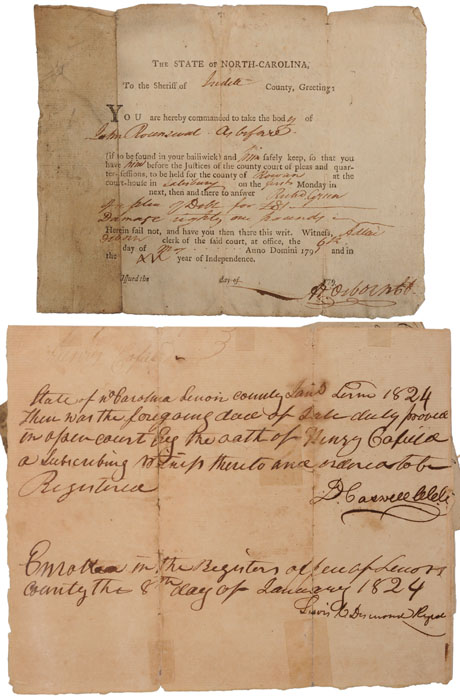 THE STATE OF NORTH-CAROLINA,
To the Sheriff of Iredell County, Greeting:
YOU are hereby commanded to take the body of
John
(if to be found in your bailiwick) and him safely keep, so that you
have him before the Justices of the county court of pleas and quar-
ter-sessions, to be held for the county of Rowan at the
court-house in Salisbury on the first Monday in
next, then and there to answer
plea of Debt for
Damage eighty one pounds
Herein fail not, and have you then there this writ. Witness,
Osborn clerk of the said court, at office, the 6th
day of Anno Domini 179 and in
the XV year of Independence.
Issued the day of
Osborn
State of No Carolina Lenoir county Term 1824
Then was the foregoing deed of Sale duly proved
in open court by the oath of Henry
a Subscribing Witness thereto and ordered to be
Registered
D Caswell Clk
Enrolled in the Registers office of Lenoir
county the 8th day of January 1824
Desmond